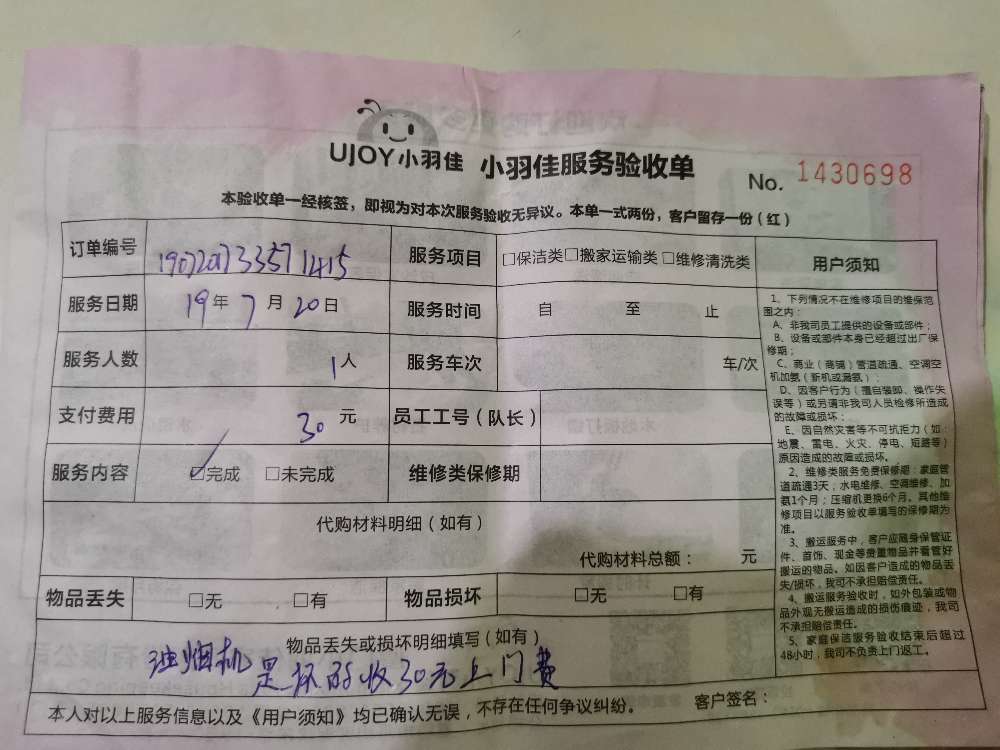 UJOY小羽佳 小羽佳服务验收单 No. 1430698
本验收单一经核签，即视为对本次服务验收无异议。本单一式两份，客户留存一份（红）
订单编号 服务项目 □保洁类□搬家运输类□维修清洗类
服务日期 19年7月20日 服务时间 自 至 止
服务人数 1人 服务车次 车/次
支付费用 30元 员工工号（队长）
服务内容 ☑完成 □未完成 维修类保修期
代购材料明细（如有）
代购材料总额： 元
物品丢失 □无 □有 物品损坏 □无 □有
物品丢失或损坏明细填写（如有）
油烟机是坏的收30元上门费
本人对以上服务信息以及《用户须知》均已确认无误，不存在任何争议纠纷。 客户签名：
用户须知
1、下列情况不在维修项目的维保范
围之内：
A、非我司员工提供的设备或部件；
B、设备或部件本身已经超过出厂保
修期；
C、商业（商铺）管道疏通、空调空
机加氨（新机或漏氨）；
D、因客户行为（擅自装卸、操作失
误等）或另请非我司人员检修所造成
的故障或损坏；
E、因自然灾害等不可抗拒力（如：
地震、雷电、火灾、停电、短路等）
原因造成的故障或损坏。
2、维修类服务免费保修期：家庭管
道疏通3天，水电维修、空调维修、加
氨1个月；压缩机更换6个月。其他维
修项目以服务验收单填写的保修期为
准。
3、搬运服务中，客户应随身保管证
件、首饰、现金等贵重物品并看管好
搬运的物品。如因客户造成的物品丢
失/损坏，我司不承担赔偿责任。
4、搬运服务验收时，如外包装或物
品外观无搬运造成的损伤痕迹，我司
不承担赔偿责任。
5、家庭保洁服务验收结束后超过
48小时，我司不负责上门返工。